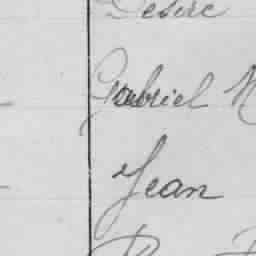 Désiré
Gabriel
Jean